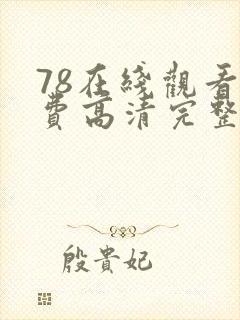 78在綫觀看
費高清完整
殷貴妃